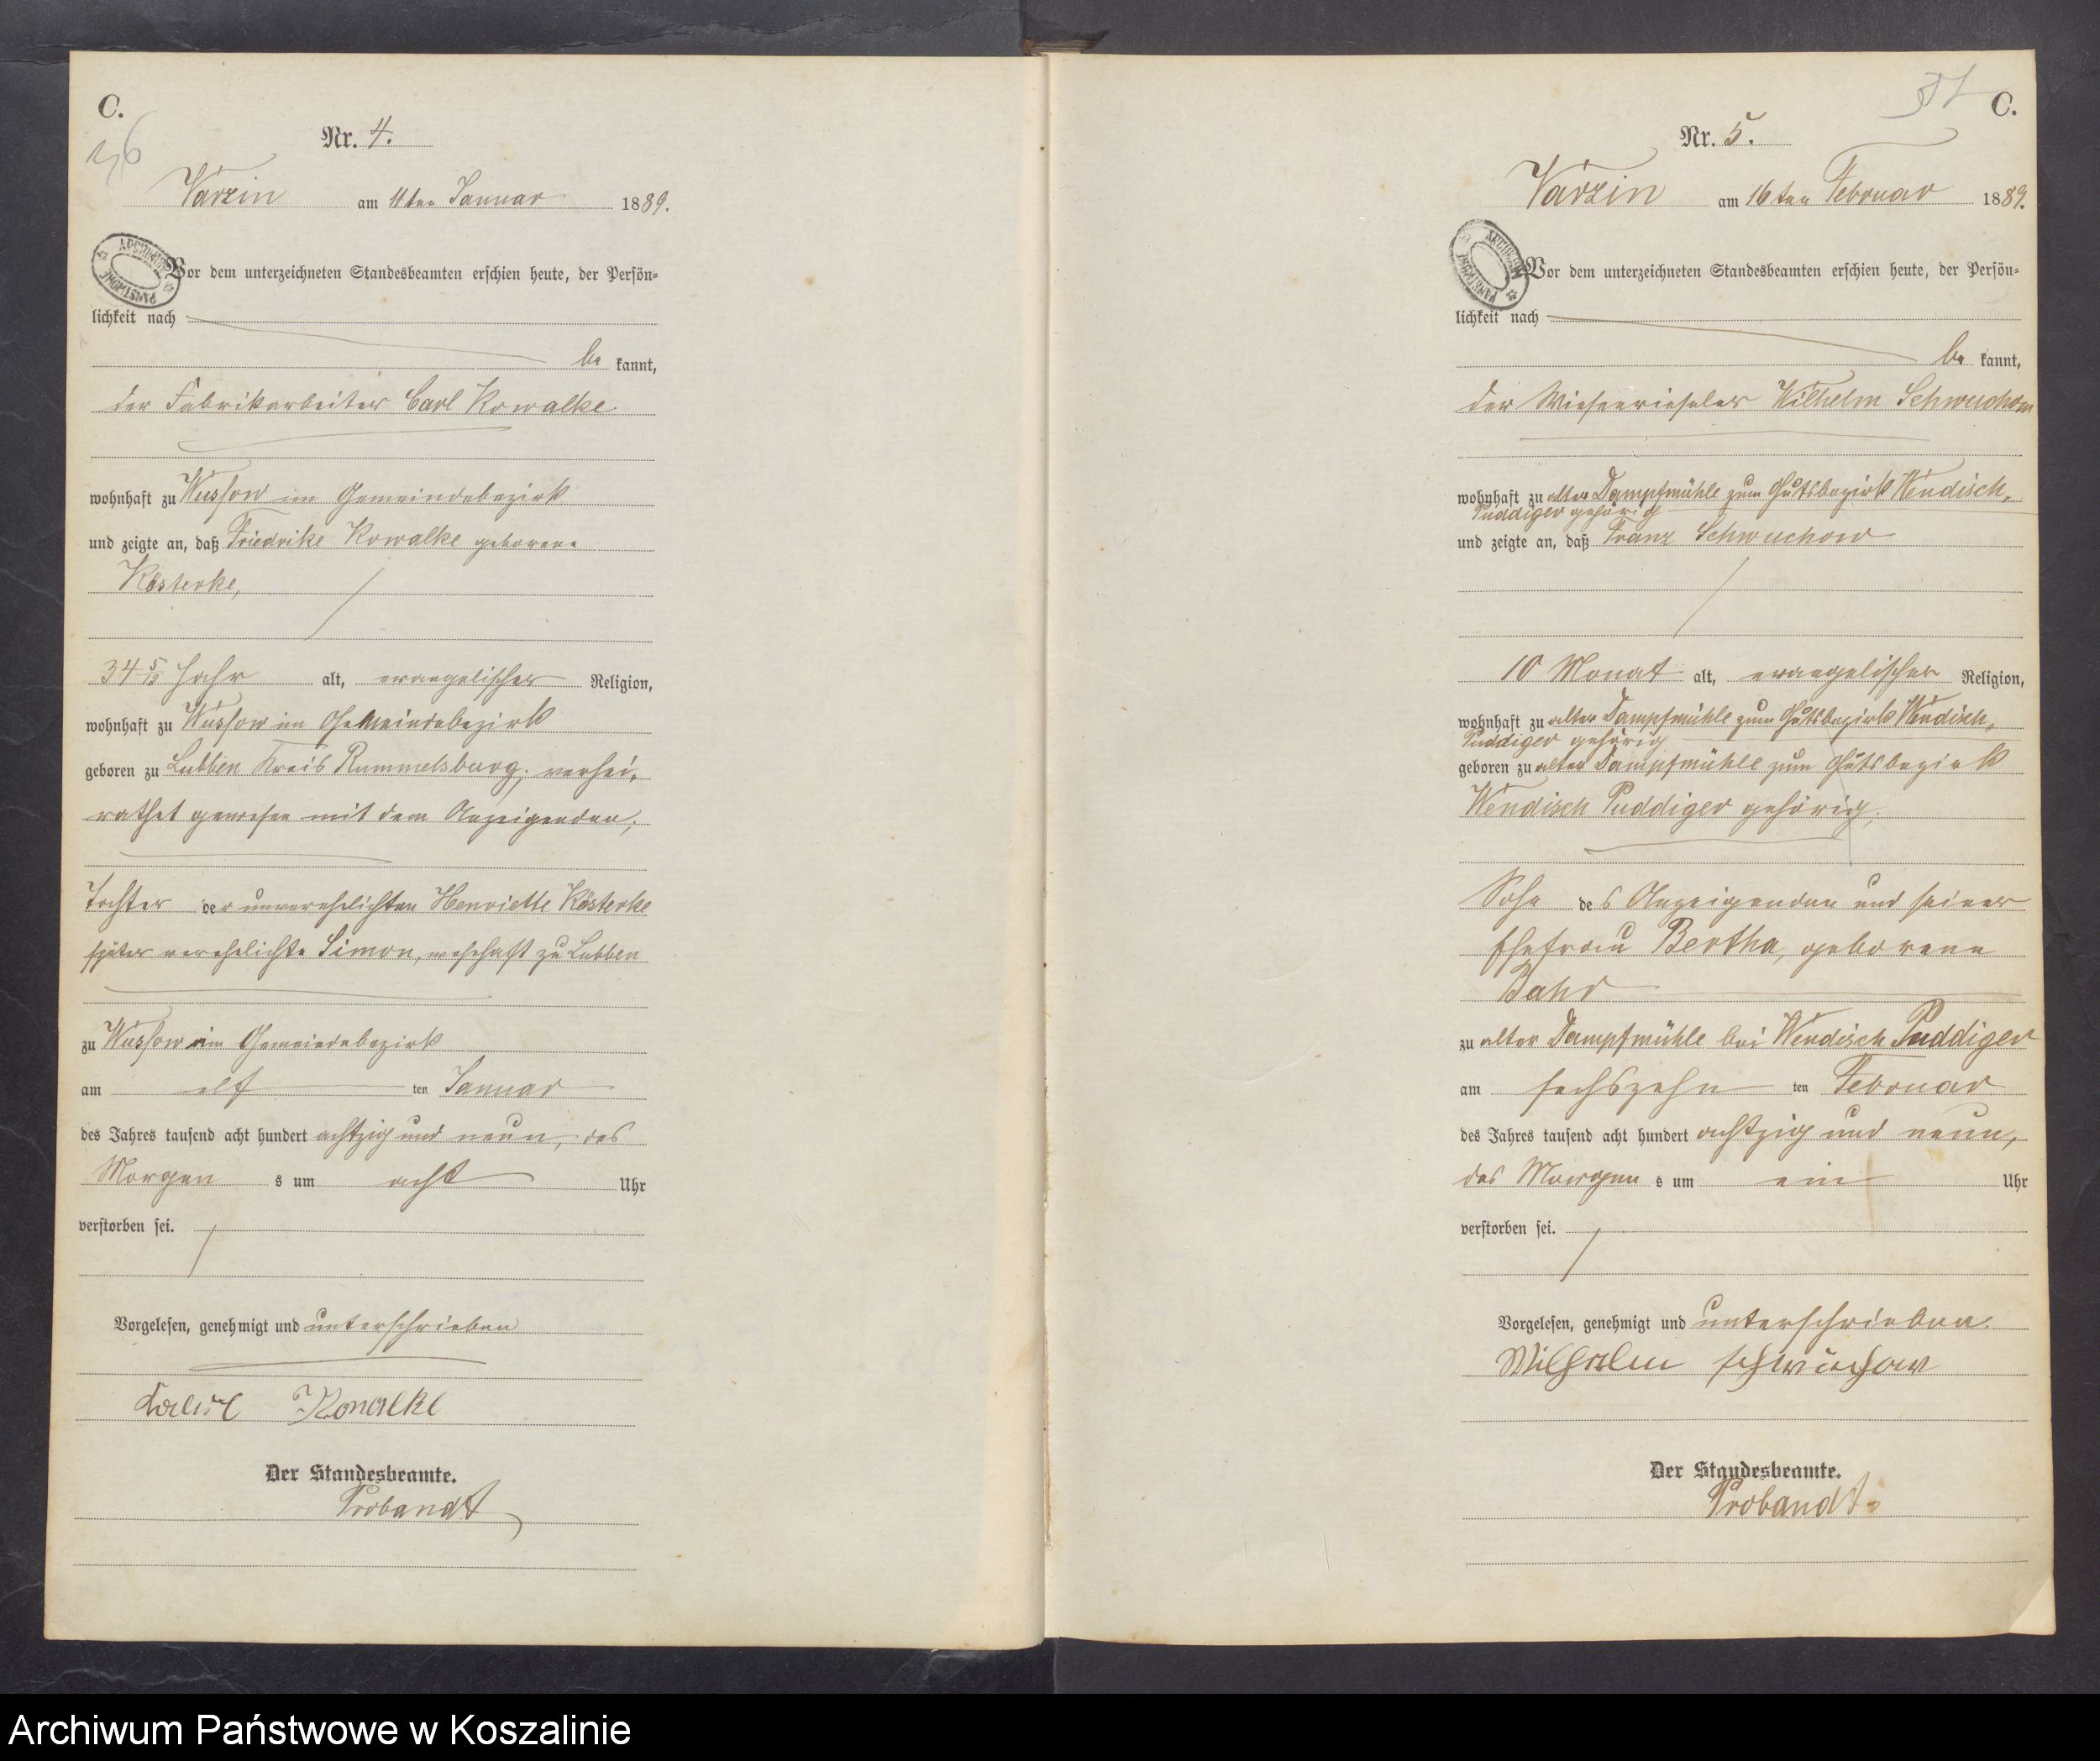 C.
36
Nr. 4.
Varzin am 11ten Januar 1889.
ARCHIWUM PAŃSTWOWE
Vor dem unterzeichneten Standesbeamten erschien heute, der Persön-
lichkeit nach
be kannt,
der Fabrikarbeiter Carl Kowalke
wohnhaft zu Wussow im Gemeindebezirk
und zeigte an, daß Friedrike Kowalke geborene
Kösterke,
34 5/12 Jahr alt, evangelischer Religion,
wohnhaft zu Wussow im Gemeindebezirk
geboren zu Lubben Kreis Rummelsburg, verhei-
rathet gewesen mit dem Anzeigenden,
Tochter der unverehelichten Henriette Kösterke
später verehelichte Simon, wohnhaft zu Lubben
zu Wussow im Gemeindebezirk
am elf ten Januar
des Jahres tausend acht hundert achtzig und neun, des
Morgen s um acht Uhr
verstorben sei.
Vorgelesen, genehmigt und unterschrieben
Kowalke
Der Standesbeamte.
Probandt
C.
37
Nr. 5.
Varzin am 16ten Februar 1889.
ARCHIWUM PAŃSTWOWE
Vor dem unterzeichneten Standesbeamten erschien heute, der Persön-
lichkeit nach
be kannt,
der Wiesenrieseler Wilhelm Schwuchow
wohnhaft zu alter Dampfmühle zum Gutsbezirk Wendisch-
Puddiger gehörig
und zeigte an, daß Franz Schwuchow
10 Monat alt, evangelischer Religion,
wohnhaft zu alter Dampfmühle zum Gutsbezirk Wendisch-
Puddiger gehörig
geboren zu alter Dampfmühle zum Gutsbezirk
Wendisch Puddiger gehörig,
Sohn des Anzeigenden und seiner
Ehefrau Bertha, geborene
Bahr
zu alter Dampfmühle bei Wendisch Puddiger
am sechszehn ten Februar
des Jahres tausend acht hundert achtzig und neun,
des Morgen s um ein Uhr
verstorben sei.
Vorgelesen, genehmigt und unterschrieben.
Wilhelm Schwuchow
Der Standesbeamte.
Probandt
Archiwum Państwowe w Koszalinie